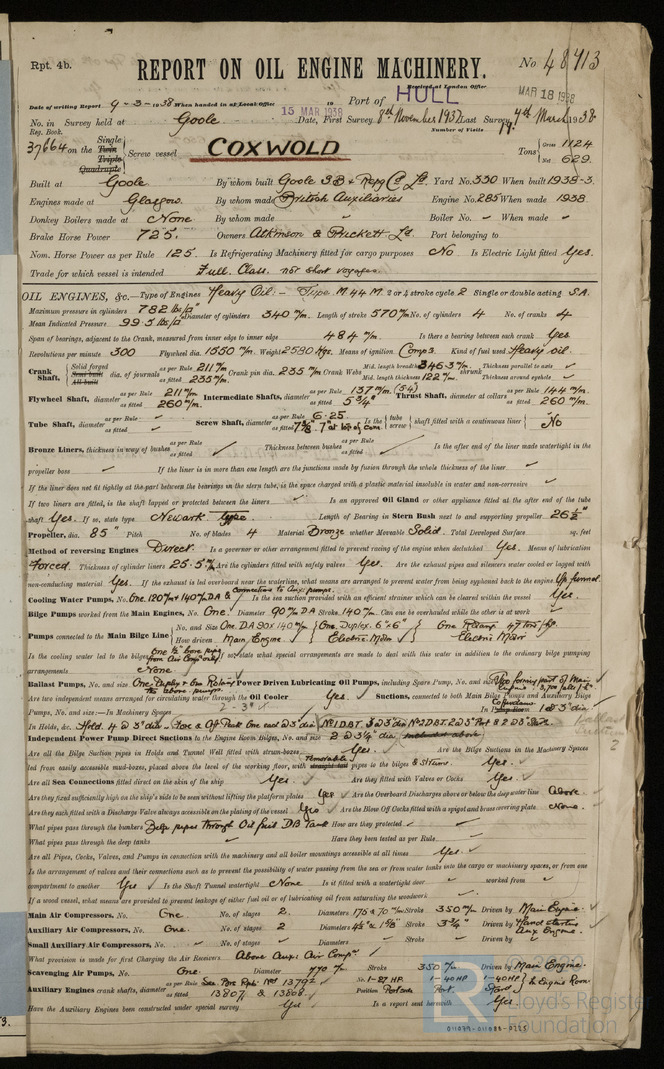 Rpt. 4b.
REPORT ON OIL ENGINE MACHINERY.
No 48413
Received at London Office
MAR 18 1938
Date of writing Report 9-3-1938 When handed in at Local Office 15 MAR 1938 19 Port of HULL
No. in Survey held at Goole Date, First Survey 8th November 1937 Last Survey 4th March 1938
Reg. Book.
Number of Visits 19
37664 on the Single Twin Triple Quadruple Screw vessel COXWOLD Tons Gross 1124 Net 629
Built at Goole By whom built Goole S.B & Repg Co Ld Yard No. 330 When built 1938-3
Engines made at Glasgow By whom made British Auxiliaries Engine No. 285 When made 1938
Donkey Boilers made at None By whom made " Boiler No. When made
Brake Horse Power 725 Owners Atkinson & Prickett Ld Port belonging to
Nom. Horse Power as per Rule 125 Is Refrigerating Machinery fitted for cargo purposes No Is Electric Light fitted Yes.
Trade for which vessel is intended Full Class. not short voyages
OIL ENGINES, &c.—Type of Engines Heavy Oil:- Type M44M 2 or 4 stroke cycle 2 Single or double acting S.A
Maximum pressure in cylinders 782 lbs/□" Diameter of cylinders 340 m/m Length of stroke 570 m/m No. of cylinders 4 No. of cranks 4
Mean Indicated Pressure 99.5 lbs/□"
Span of bearings, adjacent to the Crank, measured from inner edge to inner edge 484 m/m Is there a bearing between each crank Yes
Revolutions per minute 300 Flywheel dia. 1550 m/m Weight 2580 Kgs. Means of ignition Compn. Kind of fuel used Heavy oil
Crank Shaft, Solid forged Semi built All built dia. of journals as per Rule 211 m/m as fitted 235 m/m Crank pin dia. 235 m/m Crank Webs Mid. length breadth 346.3 m/m Mid. length thickness 122 m/m shrunk Thickness parallel to axis Thickness around eyehole
Flywheel Shaft, diameter as per Rule 211 m/m as fitted 260 m/m Intermediate Shafts, diameter as per Rule 137 m/m (5.4) as fitted 5¾" Thrust Shaft, diameter at collars as per Rule 144 m/m as fitted 260 m/m
Tube Shaft, diameter as per Rule as fitted Screw Shaft, diameter as per Rule 6.25 as fitted 7⅜" 7" at top of cone Is the tube screw shaft fitted with a continuous liner No
Bronze Liners, thickness in way of bushes as per Rule as fitted Thickness between bushes as per Rule as fitted Is the after end of the liner made watertight in the
propeller boss If the liner is in more than one length are the junctions made by fusion through the whole thickness of the liner
If the liner does not fit tightly at the part between the bearings in the stern tube, is the space charged with a plastic material insoluble in water and non-corrosive
If two liners are fitted, is the shaft lapped or protected between the liners Is an approved Oil Gland or other appliance fitted at the after end of the tube
shaft Yes. If so, state type Newark type. Length of Bearing in Stern Bush next to and supporting propeller 26½"
Propeller, dia. 85" Pitch No. of blades 4 Material Bronze whether Moveable Solid. Total Developed Surface sq. feet
Method of reversing Engines Direct. Is a governor or other arrangement fitted to prevent racing of the engine when declutched Yes. Means of lubrication
Forced. Thickness of cylinder liners 25.5 m/m Are the cylinders fitted with safety valves Yes. Are the exhaust pipes and silencers water cooled or lagged with
non-conducting material Yes. If the exhaust is led overboard near the waterline, what means are arranged to prevent water from being syphoned back to the engine Up funnel.
Cooling Water Pumps, No. One. 120 m/m + 140 m/m D.A & connection to Aux: pumps. Is the sea suction provided with an efficient strainer which can be cleared within the vessel Yes.
Bilge Pumps worked from the Main Engines, No. One. Diameter 90 m/m DA Stroke 140 m/m. Can one be overhauled while the other is at work
Pumps connected to the Main Bilge Line No. and Size One DA 90 x 140 m/m One Duplex. 6" x 6"
How driven Main Engine Electric Motor Electric Motor
Is the cooling water led to the bilges If so, state what special arrangements are made to deal with this water in addition to the ordinary bilge pumping
arrangements. None.
Ballast Pumps, No. and size the above pumps. Power Driven Lubricating Oil Pumps, including Spare Pump, No. and size
Are two independent means arranged for circulating water through the Oil Cooler Yes. Suctions, connected to both Main Bilge Pumps and Auxiliary Bilge
Pumps, No. and size:—In Machinery Spaces 2 - 3" In Cofferdam 1 @ 3" dia
In Holds, &c.
Independent Power Pump Direct Suctions to the Engine Room Bilges, No. and size 2 @ 3½" dia
Are all the Bilge Suction pipes in Holds and Tunnel Well fitted with strum-boxes Yes. Are the Bilge Suctions in the Machinery Spaces
led from easily accessible mud-boxes, placed above the level of the working floor, with removable straight tail pipes to the bilges & Strums. Yes.
Are all Sea Connections fitted direct on the skin of the ship Yes Are they fitted with Valves or Cocks Yes.
Are they fixed sufficiently high on the ship's side to be seen without lifting the platform plates Yes Are the Overboard Discharges above or below the deep water line Above
Are they each fitted with a Discharge Valve always accessible on the plating of the vessel Yes Are the Blow Off Cocks fitted with a spigot and brass covering plate None.
What pipes pass through the bunkers Bilge pipes through Oil fuel DB Tank How are they protected
What pipes pass through the deep tanks Have they been tested as per Rule
Are all Pipes, Cocks, Valves, and Pumps in connection with the machinery and all boiler mountings accessible at all times Yes.
Is the arrangement of valves and their connections such as to prevent the possibility of water passing from the sea or from water tanks into the cargo or machinery spaces, or from one
compartment to another Yes Is the Shaft Tunnel watertight None Is it fitted with a watertight door worked from
If a wood vessel, what means are provided to prevent leakage of either fuel oil or of lubricating oil from saturating the woodwork
Main Air Compressors, No. One. No. of stages 2. Diameters 175 & 70 m/m Stroke 350 m/m Driven by Main Engine.
Auxiliary Air Compressors, No. One. No. of stages 2 Diameters 4½" & 1⅝" Stroke 3¾" Driven by Hand starting Aux Engine.
Small Auxiliary Air Compressors, No. No. of stages Diameters Stroke Driven by
What provision is made for first Charging the Air Receivers Above Aux: Air Compr
Scavenging Air Pumps, No. One Diameter 770 m/m Stroke 350 m/m Driven by Main Engine.
Auxiliary Engines crank shafts, diameter as per Rule as fitted 13807 & 13808. No. 1-27 HP 1-40 HP 1-40 HP In Engine Room
Position Port Stard
Have the Auxiliary Engines been constructed under special survey Yes Is a report sent herewith Yes
LR
Lloyd's Register
Foundation